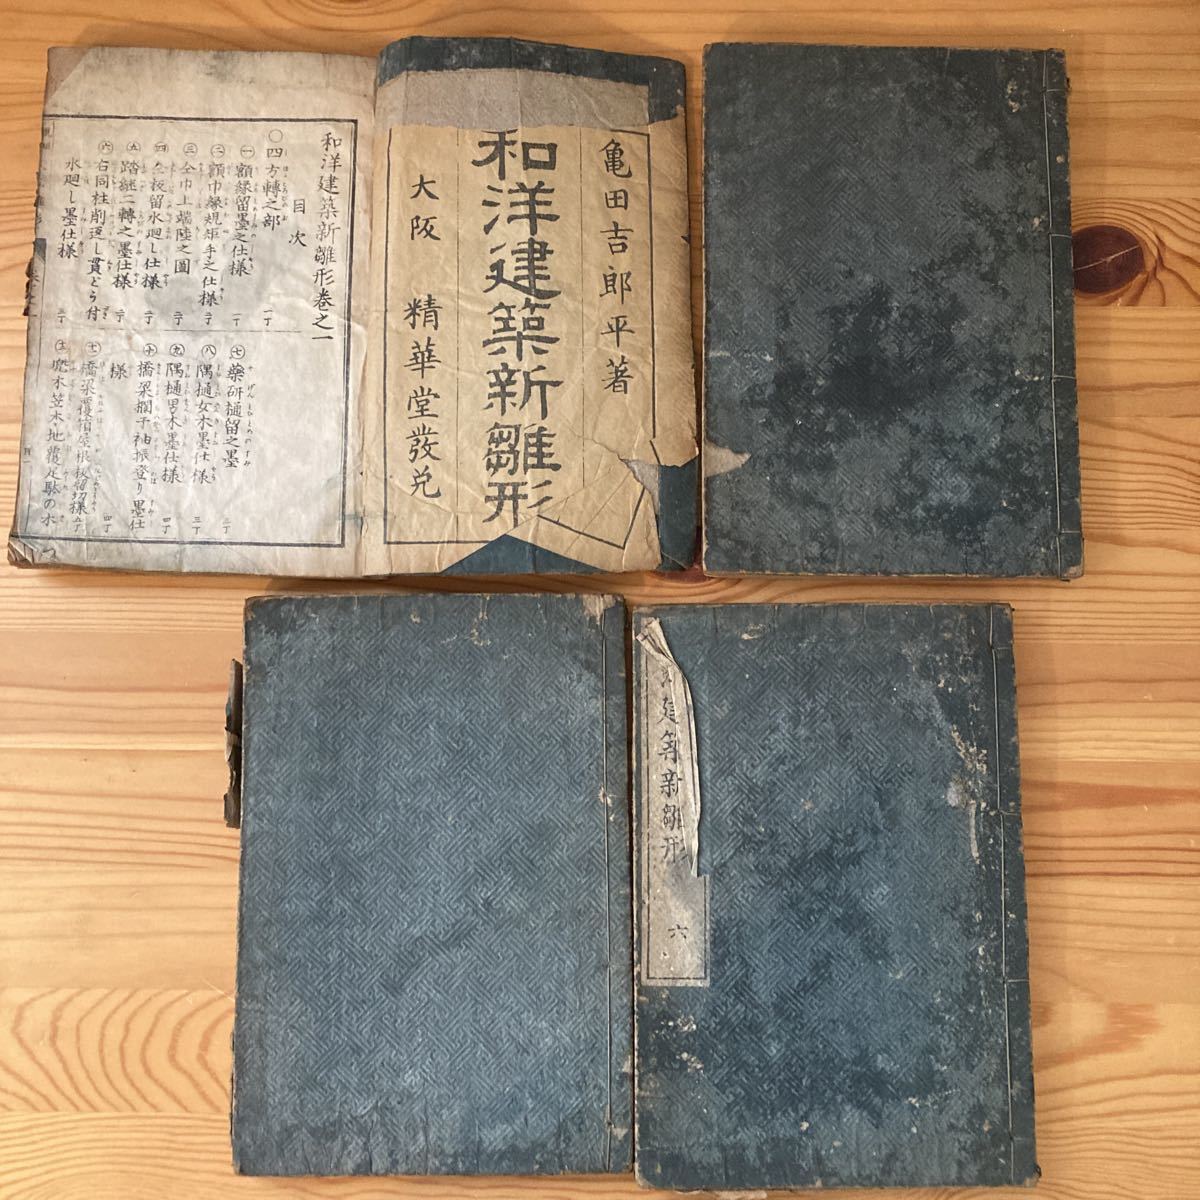 亀田吉郎平著
和洋建築新雛形
大阪 精華堂發兌
和洋建築新雛形巻之一
目次
〇四方轉之部 一丁
㊀額縁留墨之仕様 一丁
㊁額巾縁規矩手之仕様 二丁
㊂仝巾上端陸之圖 二丁
㊃仝板留水廻し仕様 二丁
㊄踏継二轉之墨仕様 二丁
㊅右同柱削返し貫どう付
水廻し墨仕様 二丁
㊆藥研樋留之墨 三丁
㊇隅樋女木墨仕様 三丁
㊈隅樋男木墨仕様 四丁
㊉橋梁欄干袖振登り墨仕
様 四丁
橋梁覆楨屋根板留切様 五丁
兜木笠木地覆足駄の木
建築新雛形
六